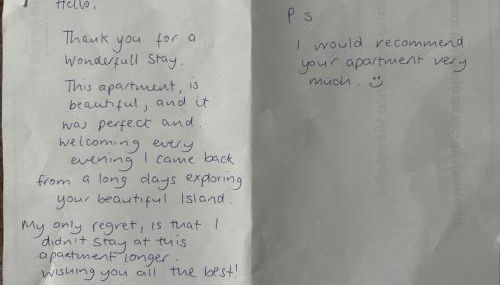 Hello,
Thank you for a
Wonderfull Stay.
This apartment, is
beautiful, and it
was perfect and
welcoming every
evening I came back
from a long days exploring
your beautiful Island.
My only regret, is that I
didn't stay at this
apartment longer.
Wishing you all the best!
P S
I would recommend
your apartment very
much. ☺